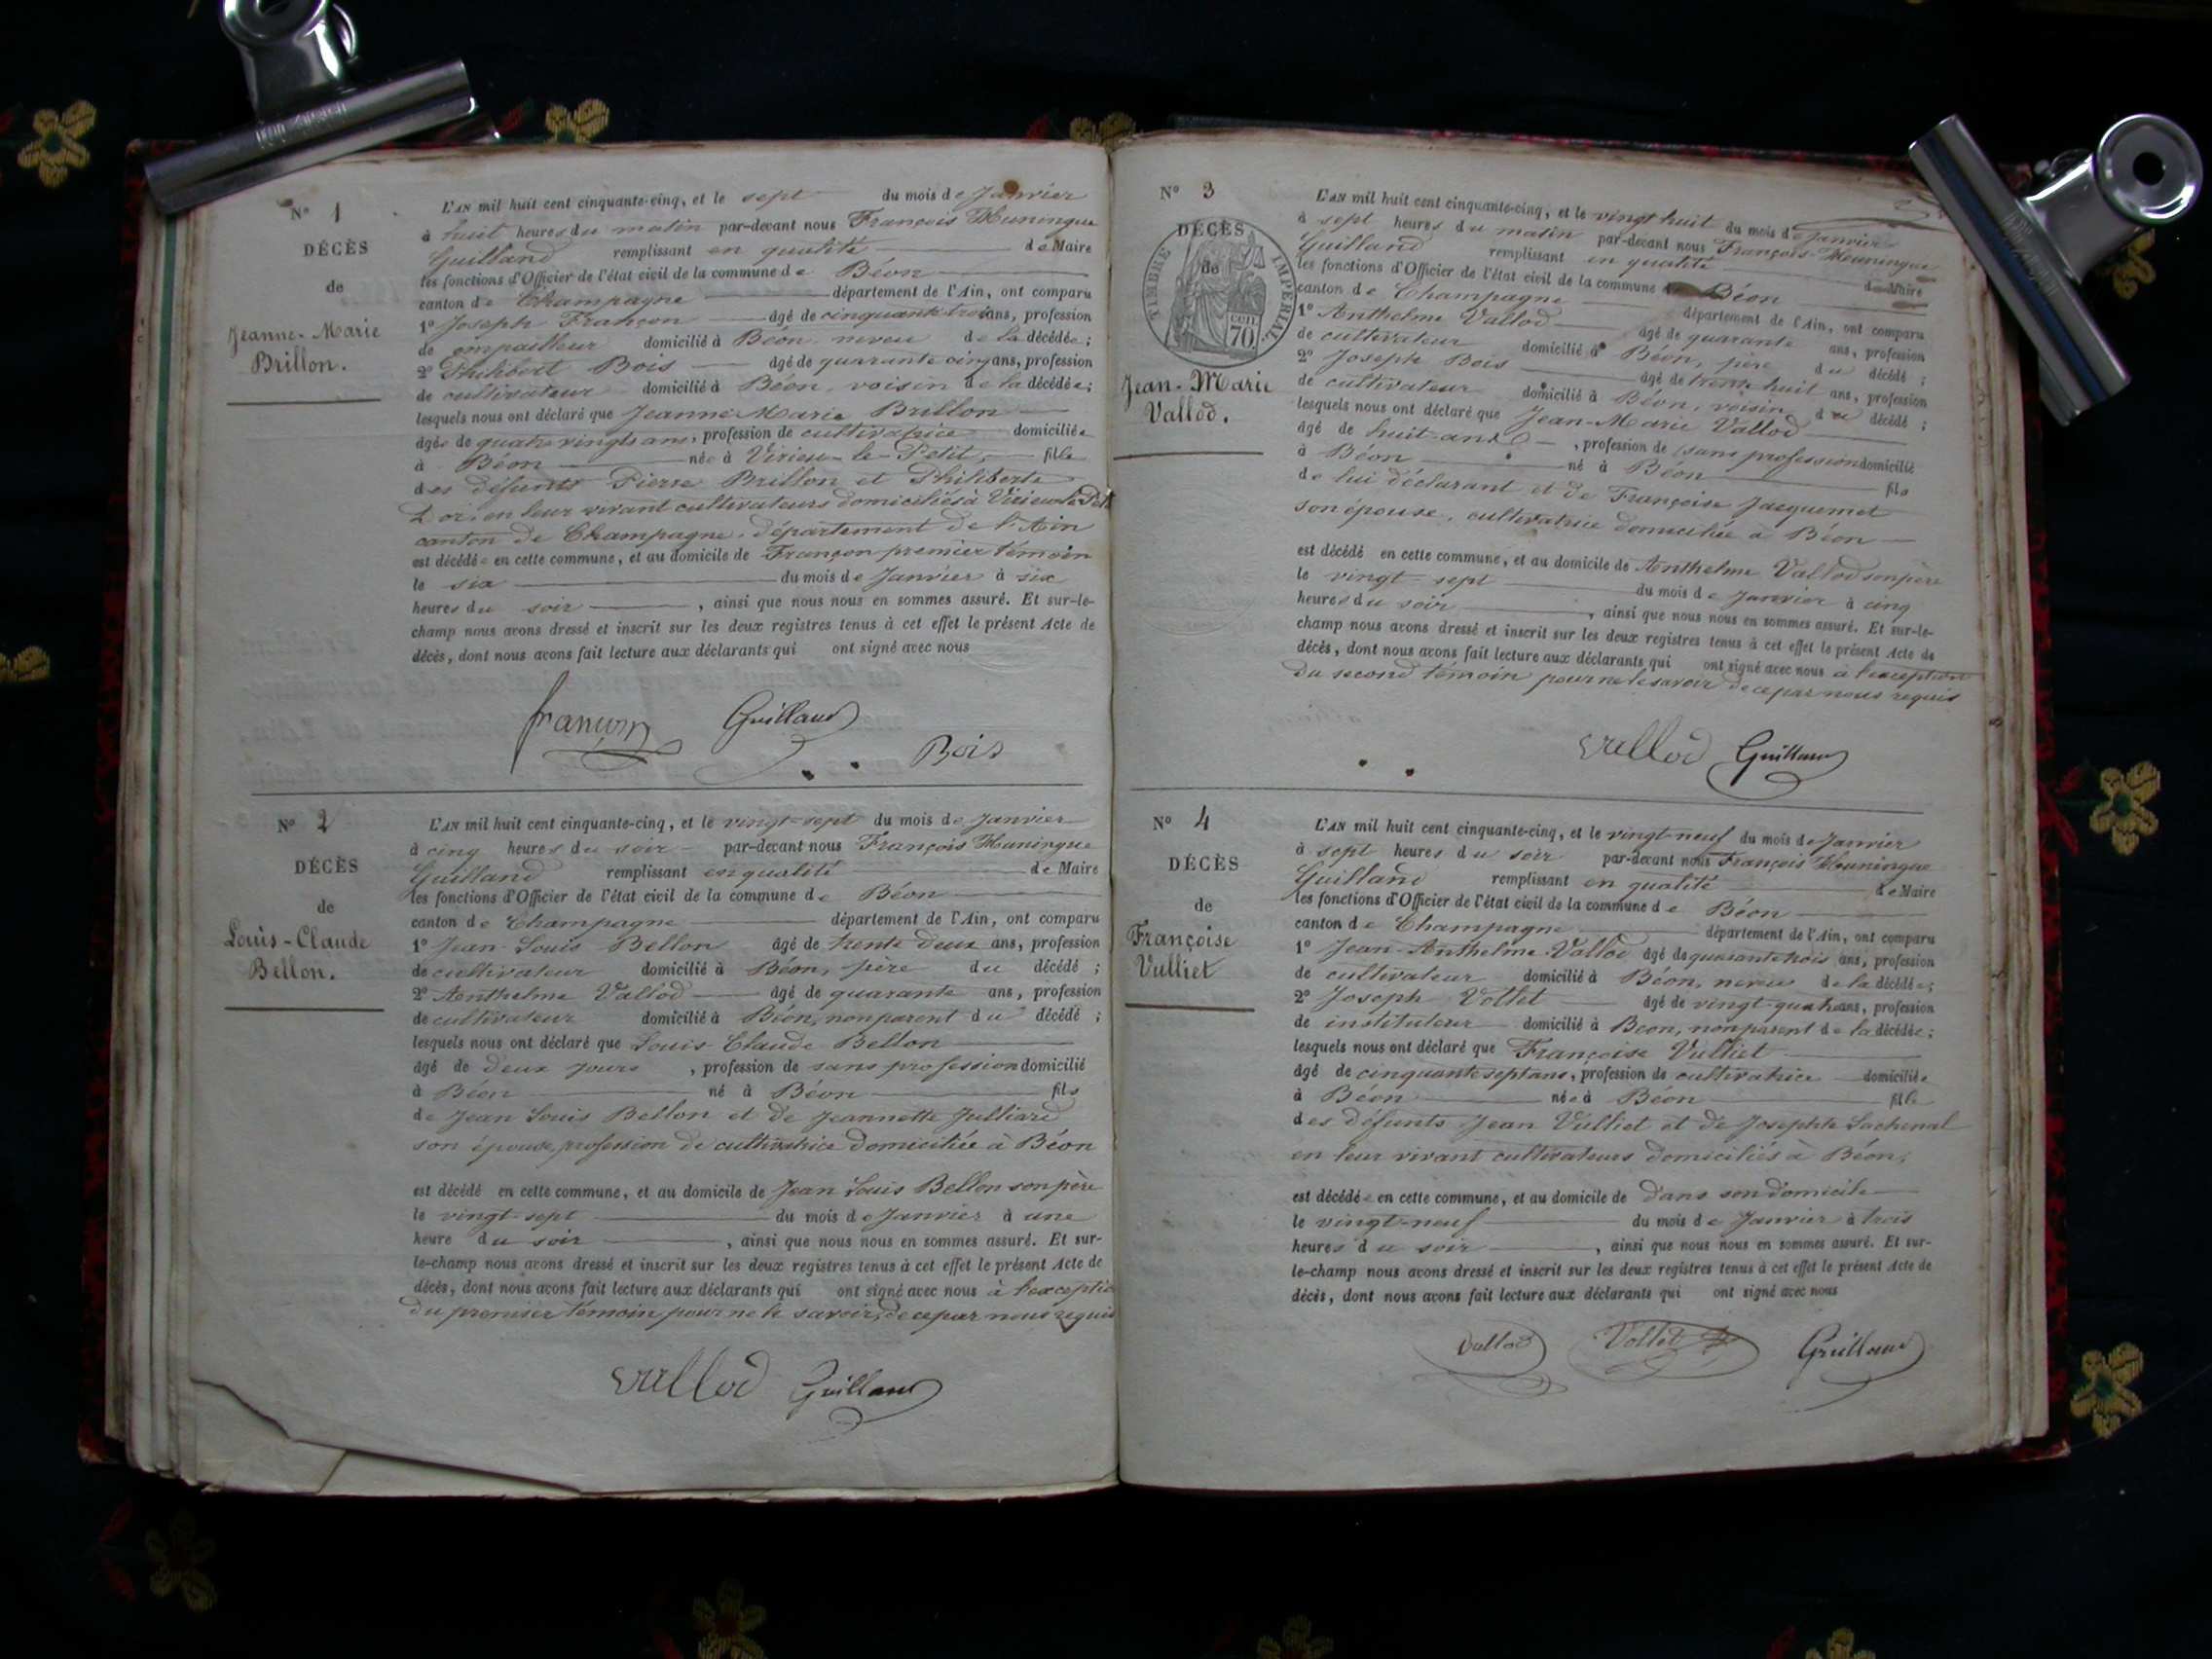 N° 1
DÉCÈS
de
Jeanne-Marie
Brillon.
L'AN mil huit cent cinquante-cinq, et le sept du mois de Janvier
à huit heures du matin par-devant nous François Huningue
Guilland remplissant en qualité de Maire
les fonctions d'Officier de l'état civil de la commune de Béon
canton de Champagne département de l'Ain, ont comparu
1° Joseph Françon âgé de cinquante trois ans, profession
de empailleur domicilié à Béon neveu de la décédée;
2° Philibert Bois âgé de quarante cinq ans, profession
de cultivateur domicilié à Béon, voisin de la décédée;
lesquels nous ont déclaré que Jeanne Marie Brillon
âgée de quatre vingts ans, profession de cultivatrice domiciliée
à Béon née à Virieu-le-Petit, fille
des défunts Pierre Brillon et Philiberte
en leur vivant cultivateurs domiciliés à Virieu le Petit
canton de Champagne, département de l'Ain
est décédée en cette commune, et au domicile de Françon premier témoin
le six du mois de Janvier à six
heures du soir, ainsi que nous nous en sommes assuré. Et sur-le-
champ nous avons dressé et inscrit sur les deux registres tenus à cet effet le présent Acte de
décès, dont nous avons fait lecture aux déclarants qui ont signé avec nous
françon Guilland
Bois
N° 2
DÉCÈS
de
Louis-Claude
Bellon.
L'AN mil huit cent cinquante-cinq, et le vingt-sept du mois de Janvier
à cinq heures du soir par-devant nous François Huningue
Guilland remplissant en qualité de Maire
les fonctions d'Officier de l'état civil de la commune de Béon
canton de Champagne département de l'Ain, ont comparu
1° Jean Louis Bellon âgé de trente deux ans, profession
de cultivateur domicilié à Béon, père du décédé;
2° Anthelme Vallod âgé de quarante ans, profession
de cultivateur domicilié à Béon, non parent du décédé;
lesquels nous ont déclaré que Louis Claude Bellon
âgé de deux jours, profession de sans profession domicilié
à Béon né à Béon fils
de Jean Louis Bellon et de Jeannette Julliard
son épouse, profession de cultivatrice domiciliée à Béon
est décédé en cette commune, et au domicile de Jean Louis Bellon son père
le vingt-sept du mois de Janvier à une
heure du soir, ainsi que nous nous en sommes assuré. Et sur-
le-champ nous avons dressé et inscrit sur les deux registres tenus à cet effet le présent Acte de
décès, dont nous avons fait lecture aux déclarants qui ont signé avec nous à l'exception
du premier témoin pour ne le savoir, de ce par nous requis
vallod Guilland
N° 3
DÉCÈS
de
TIMBRE IMPÉRIAL
CEN.
70.
Jean-Marie
Vallod.
L'AN mil huit cent cinquante-cinq, et le vingt huit du mois de Janvier
à sept heures du matin par-devant nous François Huningue
Guilland remplissant en qualité de Maire
les fonctions d'Officier de l'état civil de la commune Béon
canton de Champagne département de l'Ain, ont comparu
1° Anthelme Vallod âgé de quarante ans, profession
de cultivateur domicilié à Béon, père du décédé;
2° Joseph Bois âgé de trente huit ans, profession
de cultivateur domicilié à Béon, voisin du décédé;
lesquels nous ont déclaré que Jean-Marie Vallod
âgé de huit ans, profession de sans profession domicilié
à Béon né à Béon fils
de lui déclarant et de Françoise Jacquemet
son épouse, cultivatrice domiciliée à Béon
est décédé en cette commune, et au domicile de Anthelme Vallod son père
le vingt-sept du mois de Janvier à cinq
heures du soir, ainsi que nous nous en sommes assuré. Et sur-le-
champ nous avons dressé et inscrit sur les deux registres tenus à cet effet le présent Acte de
décès, dont nous avons fait lecture aux déclarants qui ont signé avec nous à l'exception
du second témoin pour ne le savoir de ce par nous requis
vallod Guilland
N° 4
DÉCÈS
de
Françoise
Vulliet
L'AN mil huit cent cinquante-cinq, et le vingt-neuf du mois de Janvier
à sept heures du soir par-devant nous François Huningue
Guilland remplissant en qualité de Maire
les fonctions d'Officier de l'état civil de la commune de Béon
canton de Champagne département de l'Ain, ont comparu
1° Jean-Anthelme Vallod âgé de quarante trois ans, profession
de cultivateur domicilié à Béon, neveu de la décédée;
2° Joseph Vollet âgé de vingt-quatre ans, profession
de instituteur domicilié à Béon, non parent de la décédée;
lesquels nous ont déclaré que Françoise Vulliet
âgé de cinquante sept ans, profession de cultivatrice domiciliée
à Béon née à Béon fille
des défunts Jean Vulliet et de Josephte Lachenal
en leur vivant cultivateurs domiciliés à Béon,
est décédée en cette commune, et au domicile de dans son domicile
le vingt-neuf du mois de Janvier à trois
heures du soir, ainsi que nous nous en sommes assuré. Et sur-
le-champ nous avons dressé et inscrit sur les deux registres tenus à cet effet le présent Acte de
décès, dont nous avons fait lecture aux déclarants qui ont signé avec nous
Vallod Vollet Guilland